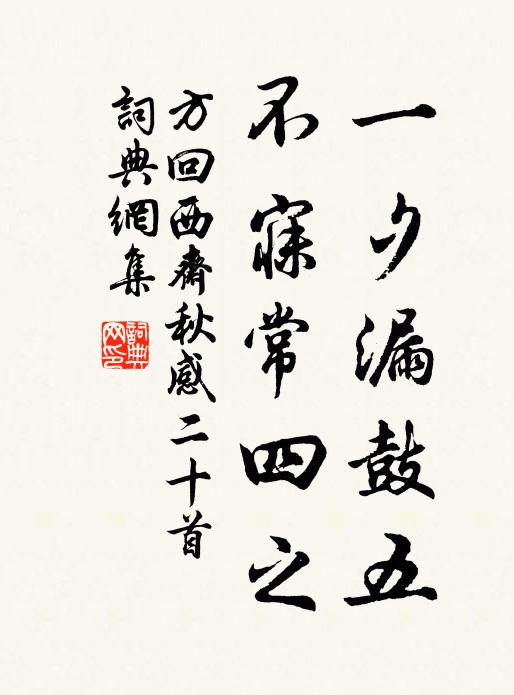 一夕漏鼓五
不寐常四之
方回西齋秋感二十首
詞典網集
詞典網印